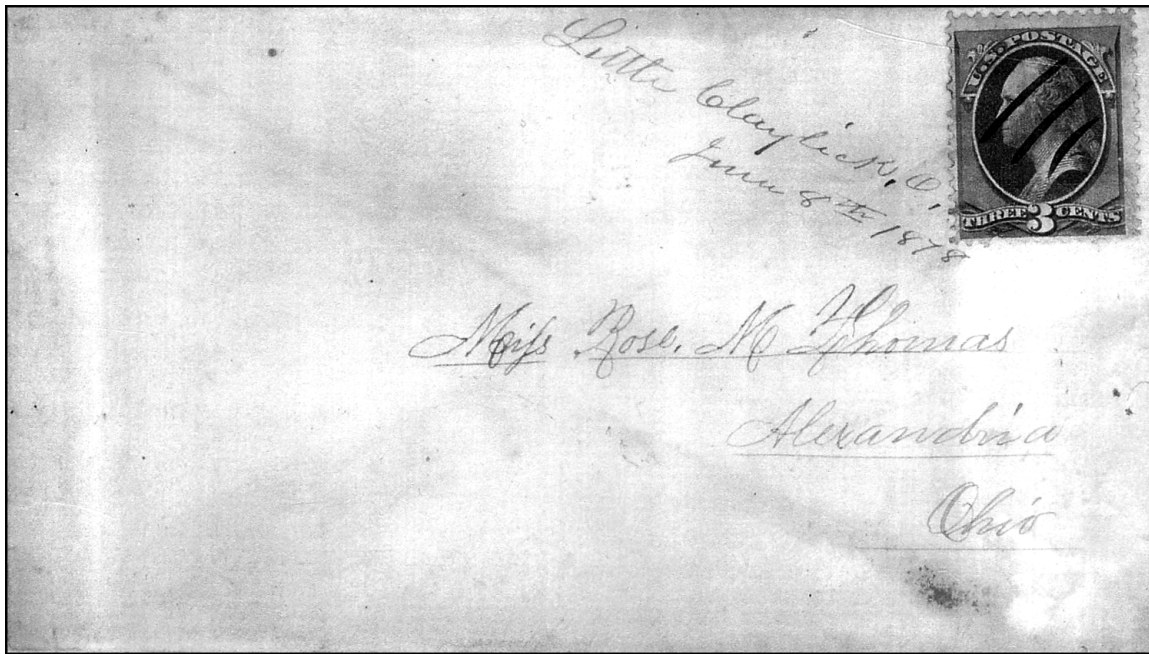 Little Claylick, O,
June 8th 1878
U.S. POSTAGE
THREE 3 CENTS
Miss Rose. M Thomas
Alexandria
Ohio